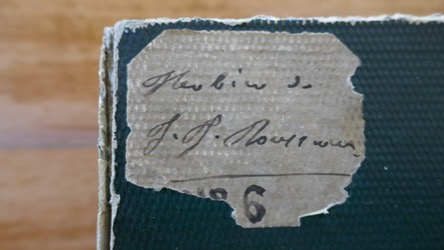 Herbier de
J. J. Rousseau